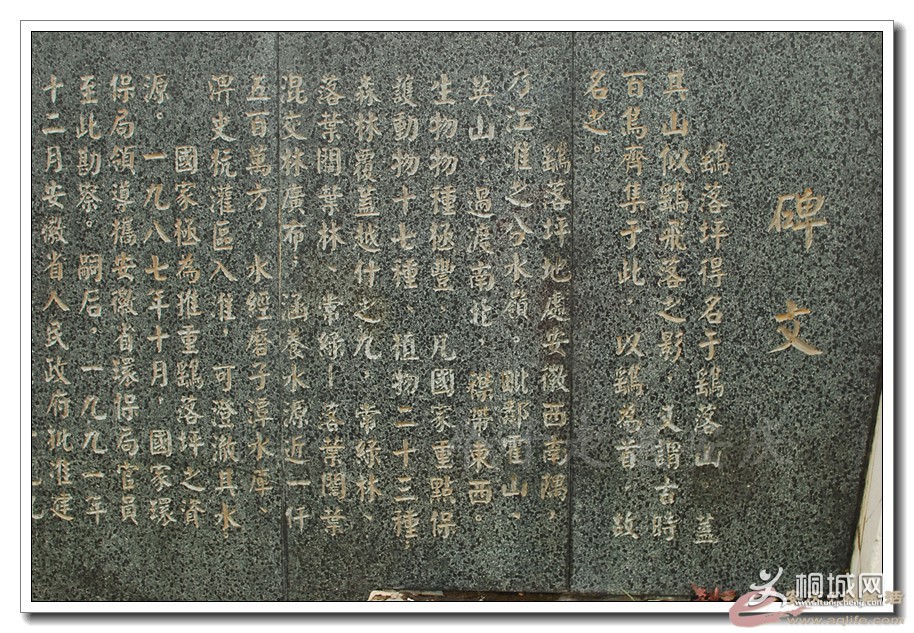 碑文
鷂落坪得名于鷂落山 蓋
其山似鷂飛落之影，又謂古時
百鳥齊集于此，以鷂為首，故
名之。
鷂落坪地處安徽西南隅，
乃江淮之分水嶺。毗鄰霍山、
英山，過渡南北，襟帶東西。
生物物種極豐、凡國家重點保
護動物十七種、植物二十三種，
森林覆蓋越什之九，常綠林、
落葉闊葉林、常綠—落葉闊葉
混交林廣布，涵養水源近一仟
五百萬方，水經磨子潭水庫、
淠史杭灌區入淮，可澄澈其水
國家極為推重鷂落坪之資
源。一九八七年十月，國家環
保局領導攜安徽省環保局官員
至此勘察。嗣后，一九九一年
十二月安徽省人民政府批准建
桐城网
www.itongcheng.com
www.aqlife.com